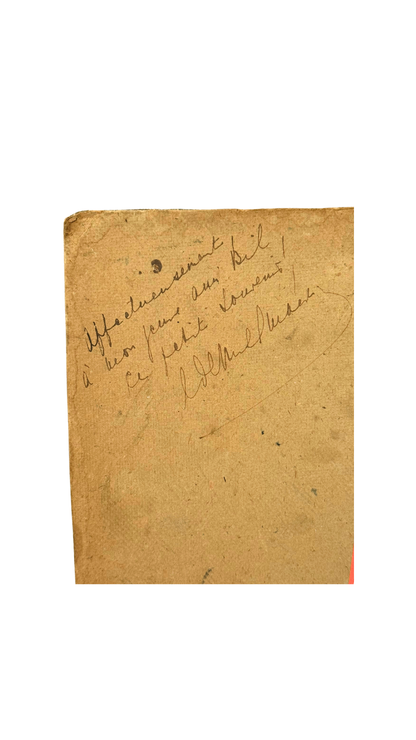 Affectueusement
à mon jeune ami Bil !
ce petit souvenir !